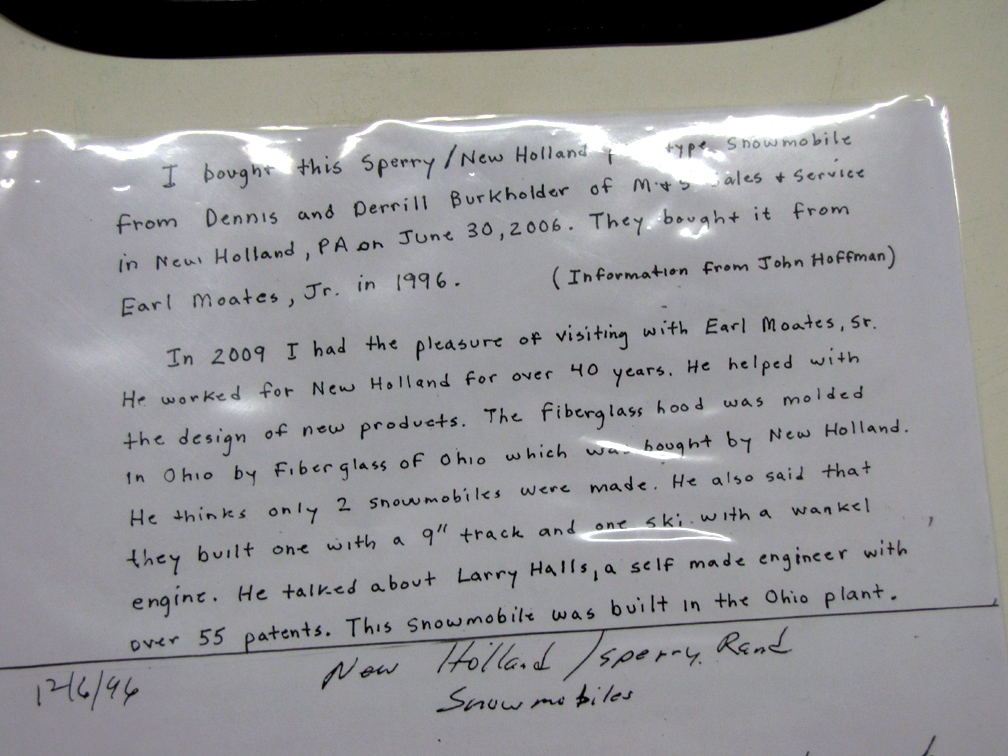 I bought this Sperry/New Holland type Snowmobile
from Dennis and Derrill Burkholder of M+S Sales + Service
in New Holland, PA on June 30, 2006. They bought it from
Earl Moates, Jr. in 1996. (Information from John Hoffman)
In 2009 I had the pleasure of visiting with Earl Moates, Sr.
He worked for New Holland for over 40 years. He helped with
the design of new products. The fiberglass hood was molded
in Ohio by Fiberglass of Ohio which was bought by New Holland.
He thinks only 2 snowmobiles were made. He also said that
they built one with a 9" track and one ski with a wankel
engine. He talked about Larry Halls, a self made engineer with
over 55 patents. This snowmobile was built in the Ohio plant.
12/6/96 New Holland/Sperry Rand
Snowmobiles